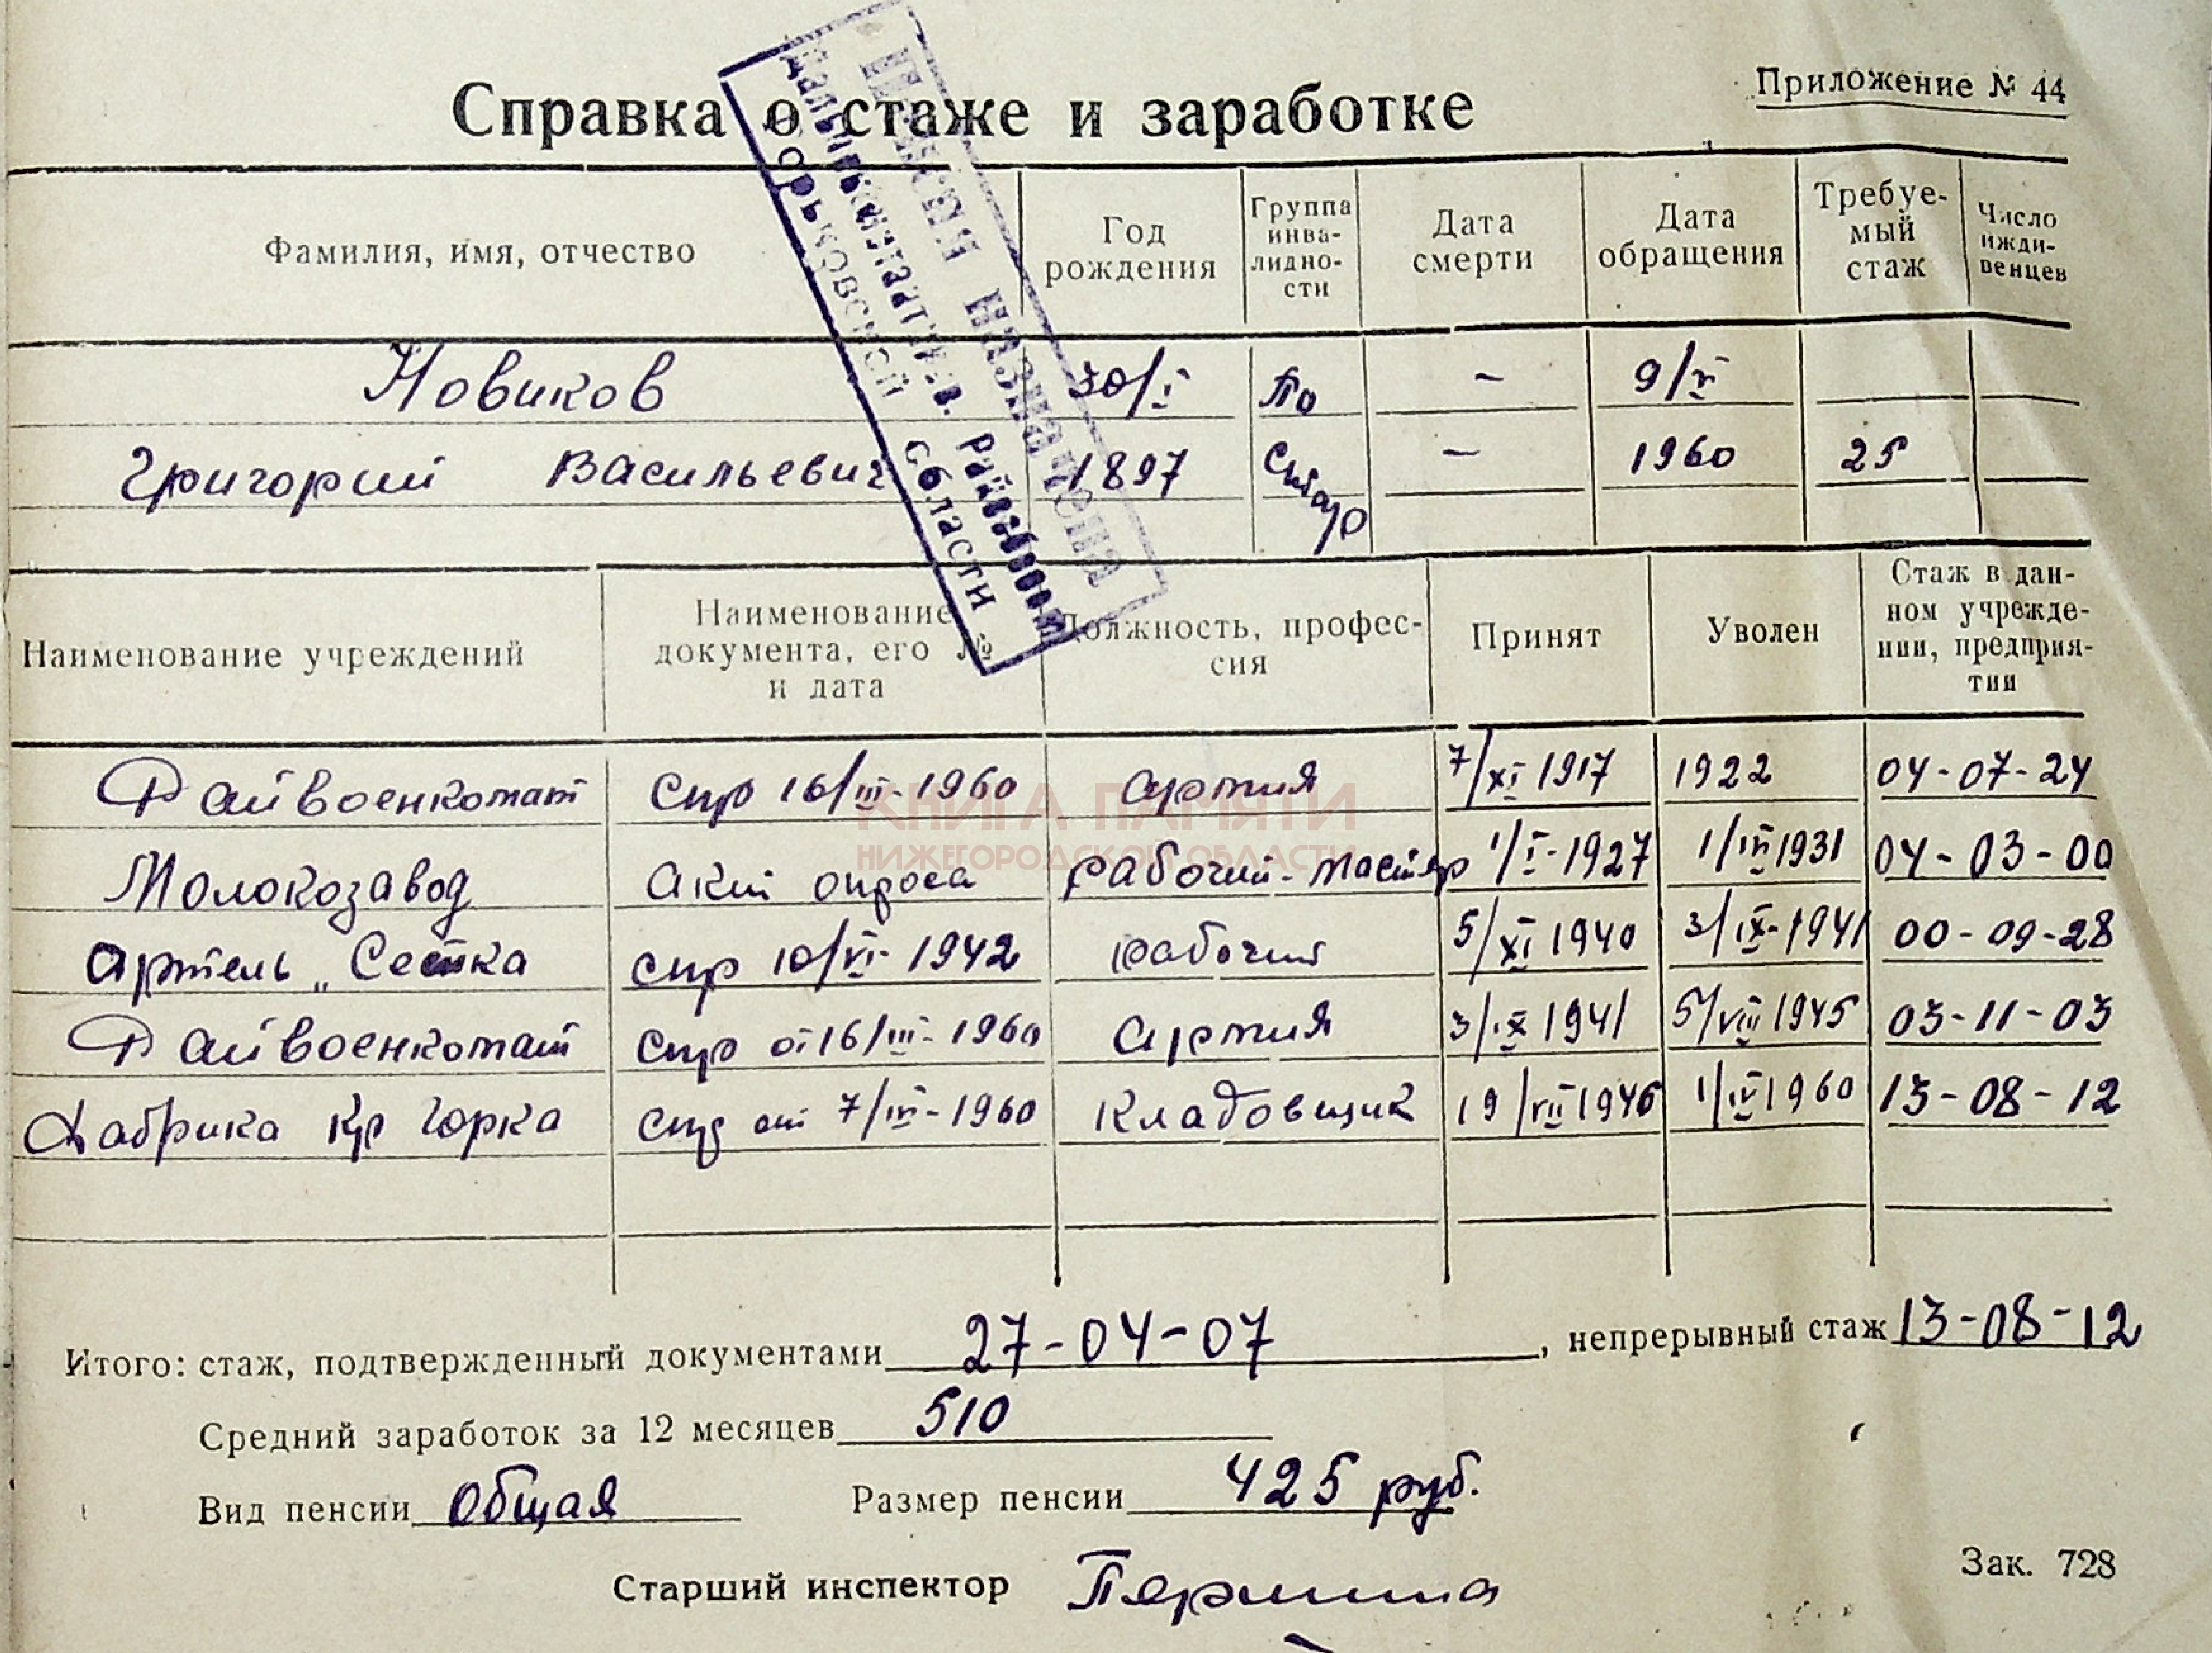 Приложение № 44
Справка о стаже и заработке
Фамилия, имя, отчество Год рождения Группа инвалидности Дата смерти Дата обращения Требуемый стаж Число иждивенцев
Новиков 30/I По - 9/V
Григорий Васильевич 1897 Стар - 1960 25
Пенсия назначена
Дальнеконстантинов. Райсобесом
Горьковской области
Наименование учреждений Наименование документа, его № и дата Должность, профессия Принят Уволен Стаж в данном учреждении, предприятии
Райвоенкомат Спр 16/III-1960 Армия 7/XI 1917 1922 04-07-24
Молокозавод Акт опроса рабочий-мастер 1/I-1927 1/IV 1931 04-03-00
Артель „Сетка спр 10/VI-1942 рабочий 5/XI 1940 3/IX-1941 00-09-28
Райвоенкомат спр от 16/III-1960 Армия 3/IX 1941 5/VIII 1945 03-11-03
Фабрика Кр Горка спр от 7/IV-1960 Кладовщик 19/VII 1946 1/IV 1960 13-08-12
КНИГА ПАМЯТИ
НИЖЕГОРОДСКОЙ ОБЛАСТИ
Итого: стаж, подтвержденный документами 27-04-07, непрерывный стаж 13-08-12
Средний заработок за 12 месяцев 510
Вид пенсии общая Размер пенсии 425 руб.
Старший инспектор
Зак. 728